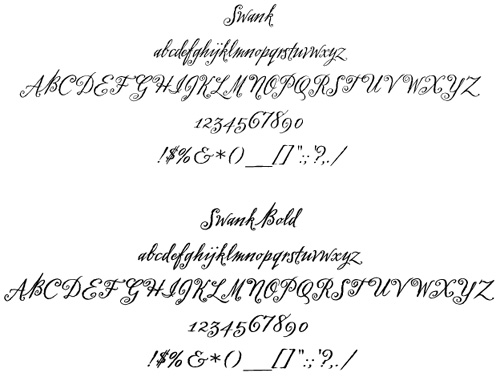 Swank
abcdefghijklmnopqrstuvwxyz
ABCDEFGHIJKLMNOPQRSTUVWXYZ
1234567890
!$%&*()__[]":;'?,./
Swank Bold
abcdefghijklmnopqrstuvwxyz
ABCDEFGHIJKLMNOPQRSTUVWXYZ
1234567890
!$%&*()__[]":;'?,./